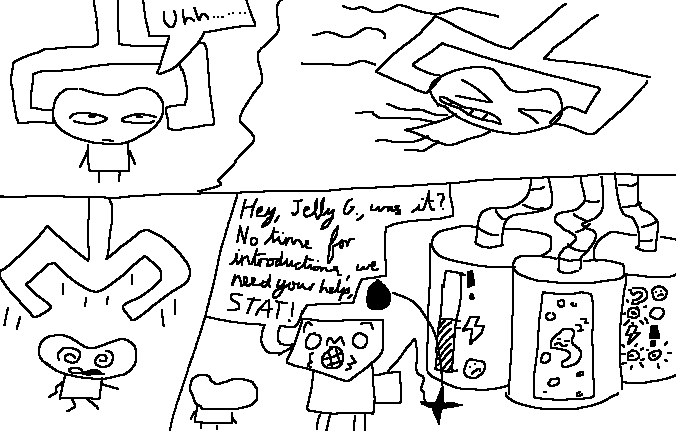 Uhh.......
Hey, Jelly G, was it?
No time for
introductions, we
need your help,
STAT!